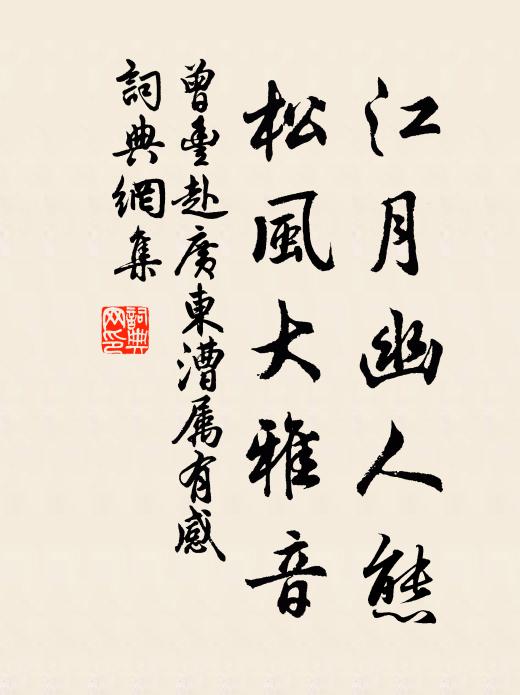 江月幽人態
松風大雅音
曾豐赴廣東漕属有感
詞典網集
詞典
网印